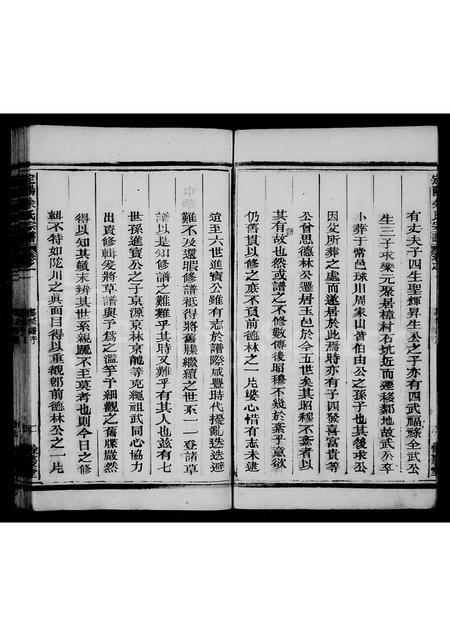 有丈夫子四生聖輝昇生公之子亦有四武福祿全武公
生三子求榮元聚居樟村石坑近而遷移鄰地故武公卒
小葬于常邑球川周家山曾伯由公之孫子也其後求公
因父所葬之處而遂居於此焉時亦有子四發喜富貴等
公曾思德林公遷居玉邑於今五世矣其昭穆不紊者以
其有故也然或譜之不修數傳後昭穆不幾於紊乎意欲
仍舊貫以修之庶不負前德林之一片婆心惜有志未逮
迨至六世進寶公雖有志於譜際咸豐時代擾亂迭迭避
難不及還暇修譜祗得將舊牒繼續之世系一一登諸草
譜以是知修譜之難難乎有其時又難乎有其人也茲有七
世孫進寶公之子京源京林京龍等克繩祖武同心協力
出資修輯爰將草譜與予為之濫竽予細觀之舊牒嚴然
得以知其顛末辨其世系親疏不至莫考也則今日之修
輯不特如陇川之真面目得以重覩卽前德林公之一片